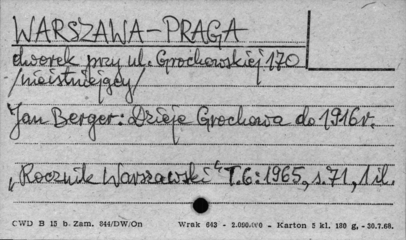 WARSZAWA-PRAGA
dworek przy ul. Grochowskiej 170
/nieistniejący/
Jan Berger: Dzieje Grochowa do 1916 r.
„Rocznik Warszawski" T.6: 1965, s. 71, 1 il.
CWD B 15 b. Zam. 544/DW/On Wrak 643 - 2.000.000 - Karton 5 kl. 180 g, - 30.7.68.